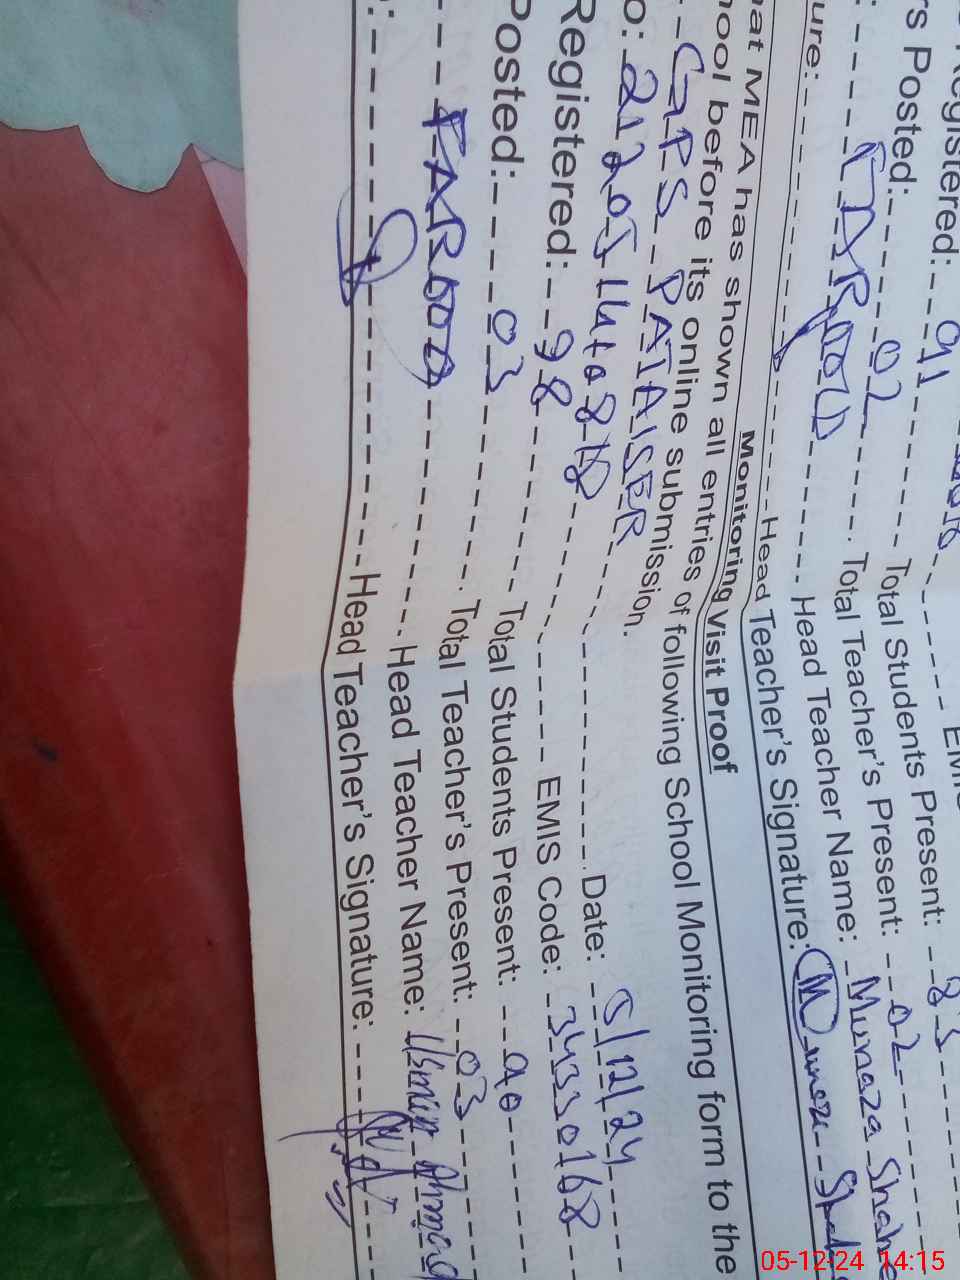 Registered: 91 EMIS
rs Posted: 02 Total Students Present: 83
: FAROOQ Total Teacher's Present: 02
ure: Head Teacher Name: Munaza Shahe
Head Teacher's Signature: Munaza
Monitoring Visit Proof
hat MEA has shown all entries of following School Monitoring form to the
hool before its online submission.
GPS PATAISER Date: 5/12/24
o: EMIS Code: 34330168
Registered: 98 Total Students Present: 90
Posted: 03 Total Teacher's Present: 03
FAROOQ Head Teacher Name: Usman Ahmad
: Head Teacher's Signature:
05-12-24 14:15